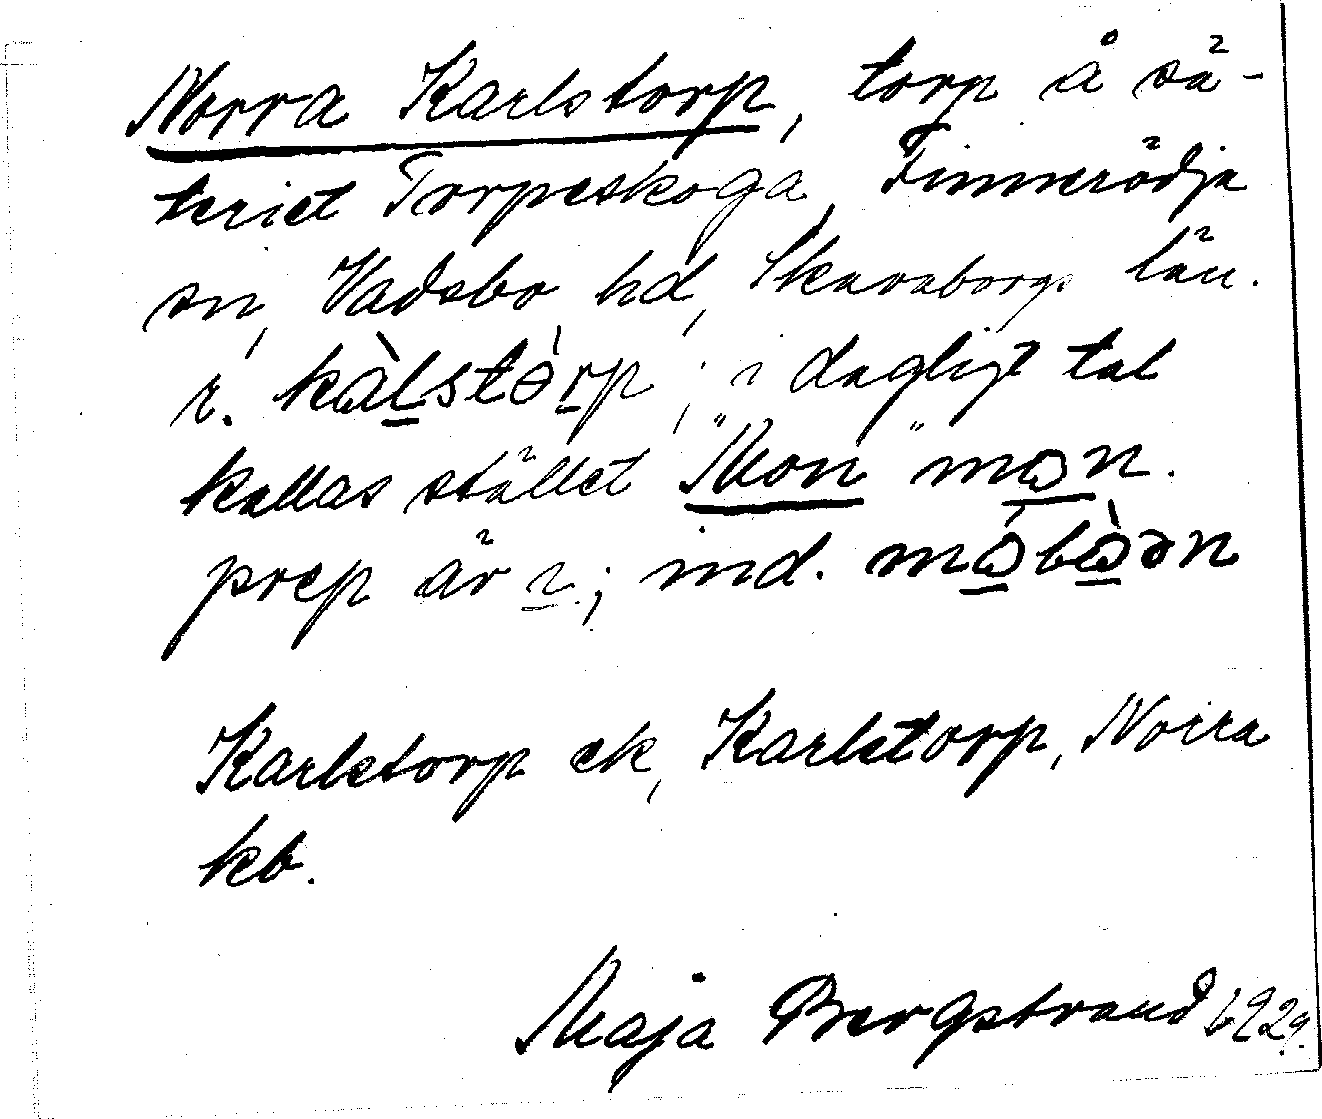 Norra Karlstorp, torp å sä-
teriet Torpeskoga, Finnerödja
sn, Vadsbo hd, Skaraborgs län.
r. kàlstòrp; i dagligt tal
kallas stället "Mon" mɷn.
prep är i; ind.
Karlstorp ek, Karlstorp, Norra
kb.
Maja Bergstrand 1929.